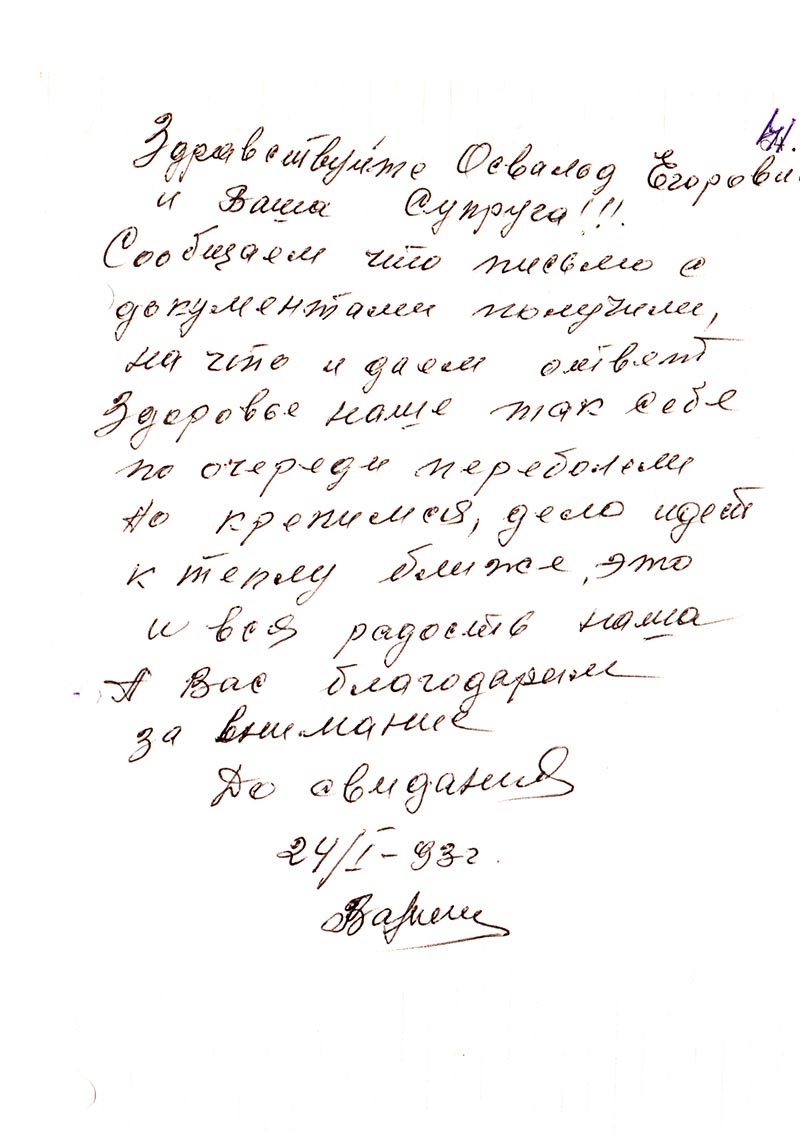 Здравствуйте Освальд Егорови
и Ваша Супруга!!!
Сообщаем что письмо с
документами получили,
на что и даем ответ
Здоровье наше так себе
по очереди переболели
Но крепимся, дело идет
к теплу ближе, это
и вся радость наша
А Вас благодарим
за внимание
До свидания
24/I-93г.